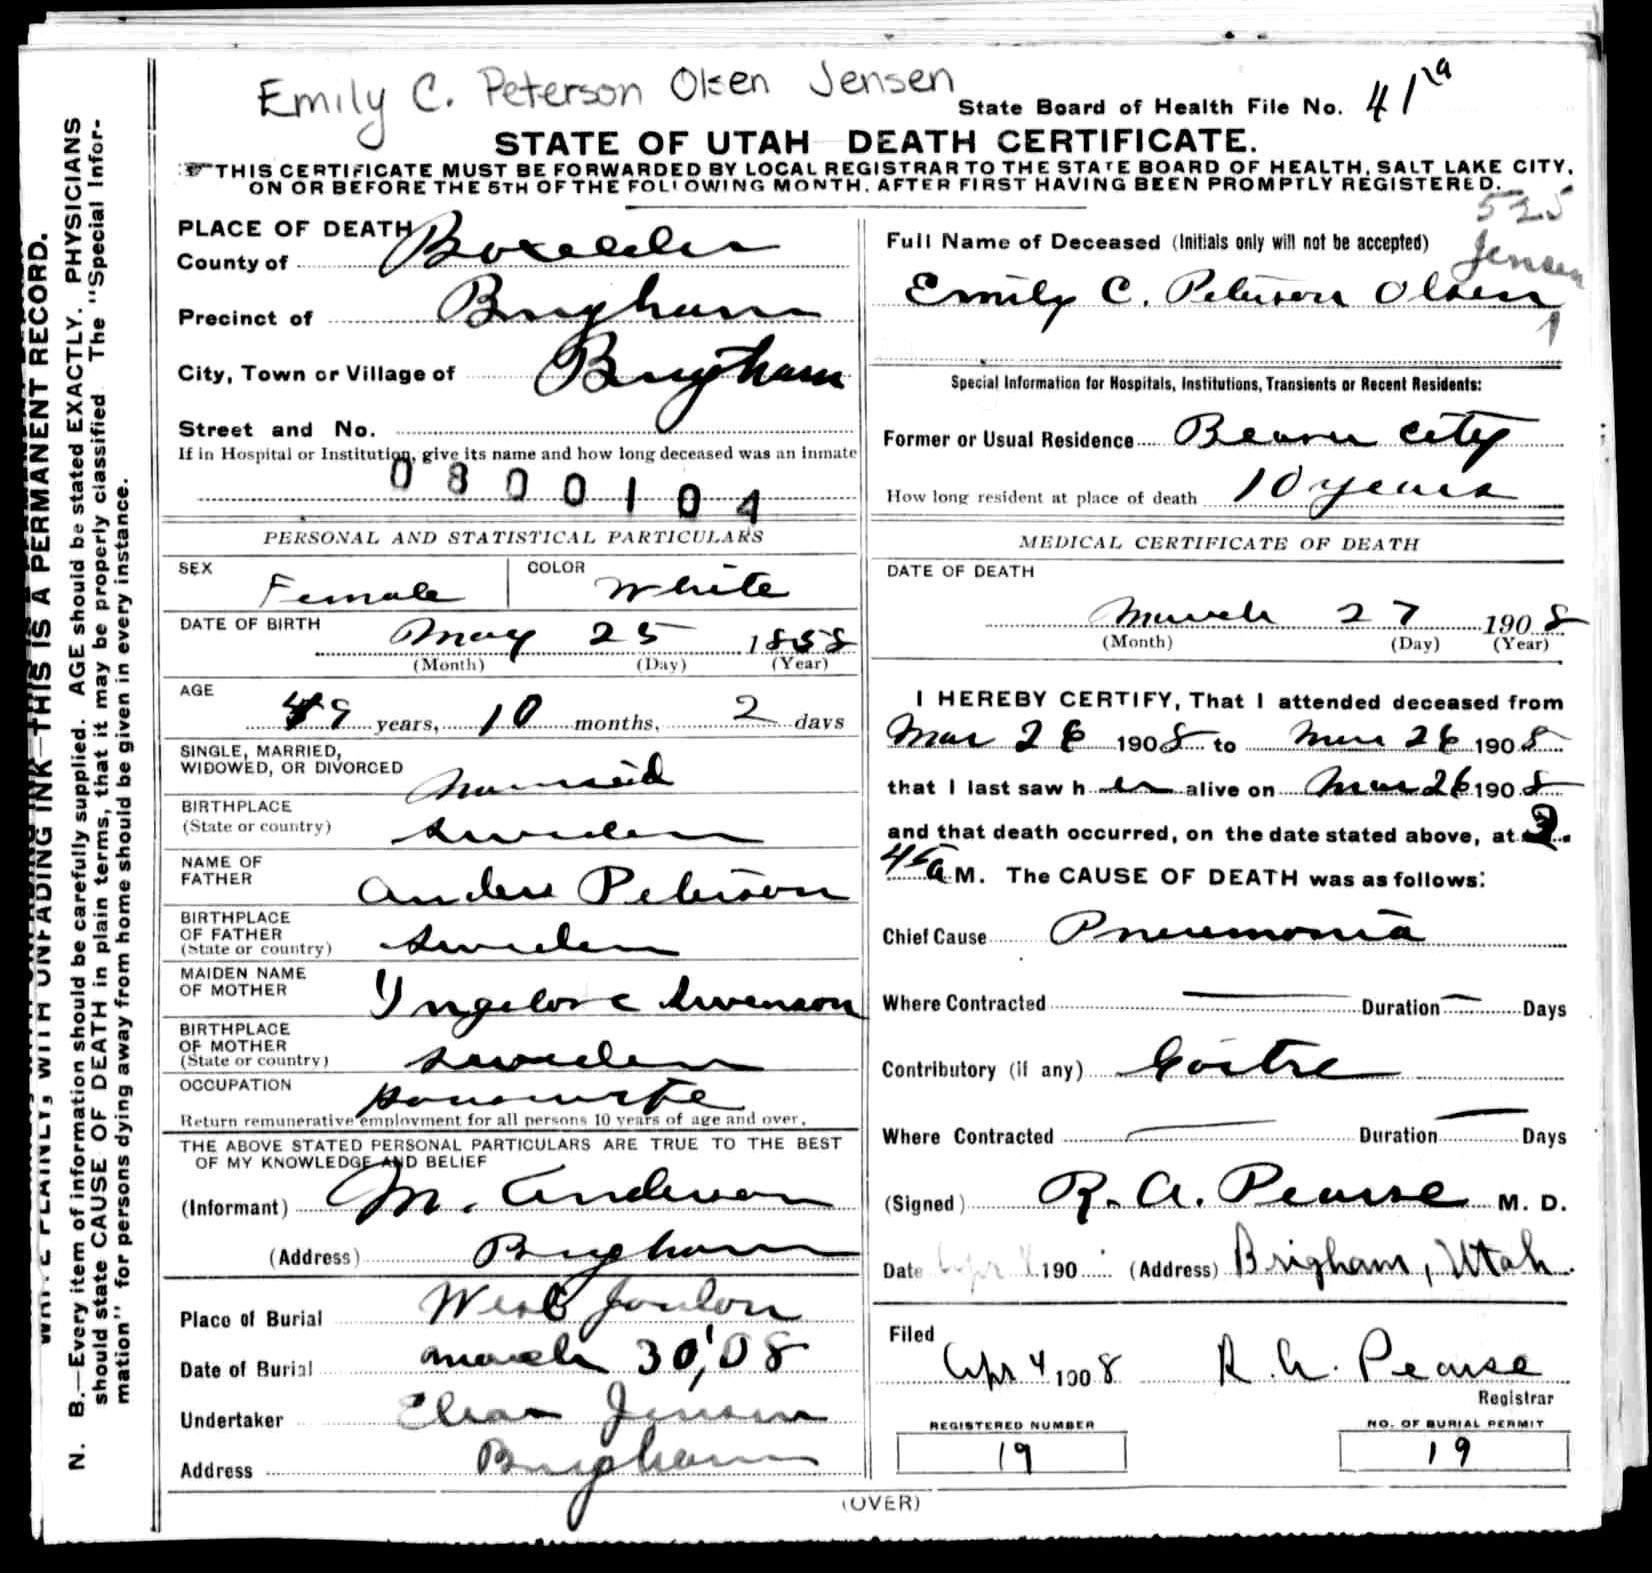 Emily C. Peterson Olsen Jensen
State Board of Health File No. 41
STATE OF UTAH DEATH CERTIFICATE.
THIS CERTIFICATE MUST BE FORWARDED BY LOCAL REGISTRAR TO THE STATE BOARD OF HEALTH, SALT LAKE CITY,
ON OR BEFORE THE 5TH OF THE FOLLOWING MONTH, AFTER FIRST HAVING BEEN PROMPTLY REGISTERED.
PLACE OF DEATH
County of Boxelder
Precinct of Brigham
City, Town or Village of Brigham
Street and No.
If in Hospital or Institution, give its name and how long deceased was an inmate
0800104
PERSONAL AND STATISTICAL PARTICULARS
SEX Female COLOR White
DATE OF BIRTH
May 25 1858
(Month) (Day) (Year)
AGE
49 years, 10 months, 2 days
SINGLE, MARRIED,
WIDOWED, OR DIVORCED Married
BIRTHPLACE
(State or country) Sweden
NAME OF
FATHER Anders Peterson
BIRTHPLACE
OF FATHER
(State or country) Sweden
MAIDEN NAME
OF MOTHER Swenson
BIRTHPLACE
OF MOTHER
(State or country) Sweden
OCCUPATION Housewife
Return remunerative employment for all persons 10 years of age and over.
THE ABOVE STATED PERSONAL PARTICULARS ARE TRUE TO THE BEST
OF MY KNOWLEDGE AND BELIEF
(Informant) M. Anderson
(Address) Brigham
Place of Burial West
Date of Burial March 30, '08
Undertaker Jensen
Address Brigham
525
Full Name of Deceased (Initials only will not be accepted)
Jensen
Emily C. Peterson Olsen
1
Special Information for Hospitals, Institutions, Transients or Recent Residents:
Former or Usual Residence Beaver City
How long resident at place of death 10 years
MEDICAL CERTIFICATE OF DEATH
DATE OF DEATH
March 27 1908
(Month) (Day) (Year)
I HEREBY CERTIFY, That I attended deceased from
Mar 26 1908 to Mar 26 1908
that I last saw her alive on Mar 26 1908
and that death occurred, on the date stated above, at 2
45 a M. The CAUSE OF DEATH was as follows:
Chief Cause Pneumonia
Where Contracted Duration Days
Contributory (if any) Goitre
Where Contracted Duration Days
(Signed) R. A. Pearse M. D.
Date Apr 190 (Address) Brigham, Utah.
Filed
Apr 4 1908 R. A. Pearse
Registrar
REGISTERED NUMBER
19
NO. OF BURIAL PERMIT
19
(OVER)
WRITE PLAINLY, WITH UNFADING INK—THIS IS A PERMANENT RECORD.
N. B.—Every item of information should be carefully supplied. AGE should be stated EXACTLY. PHYSICIANS
should state CAUSE OF DEATH in plain terms, that it may be properly classified. The "Special Infor-
mation" for persons dying away from home should be given in every instance.